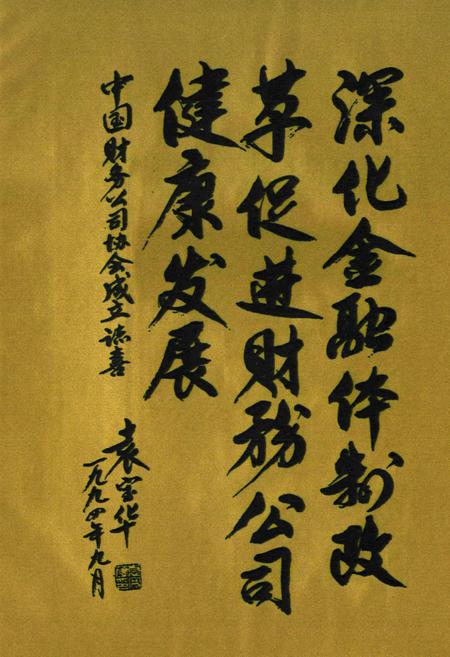 深化金融体制改
革促进财务公司
健康发展
中国财务公司协会成立志喜
袁宝华
一九九四年九月